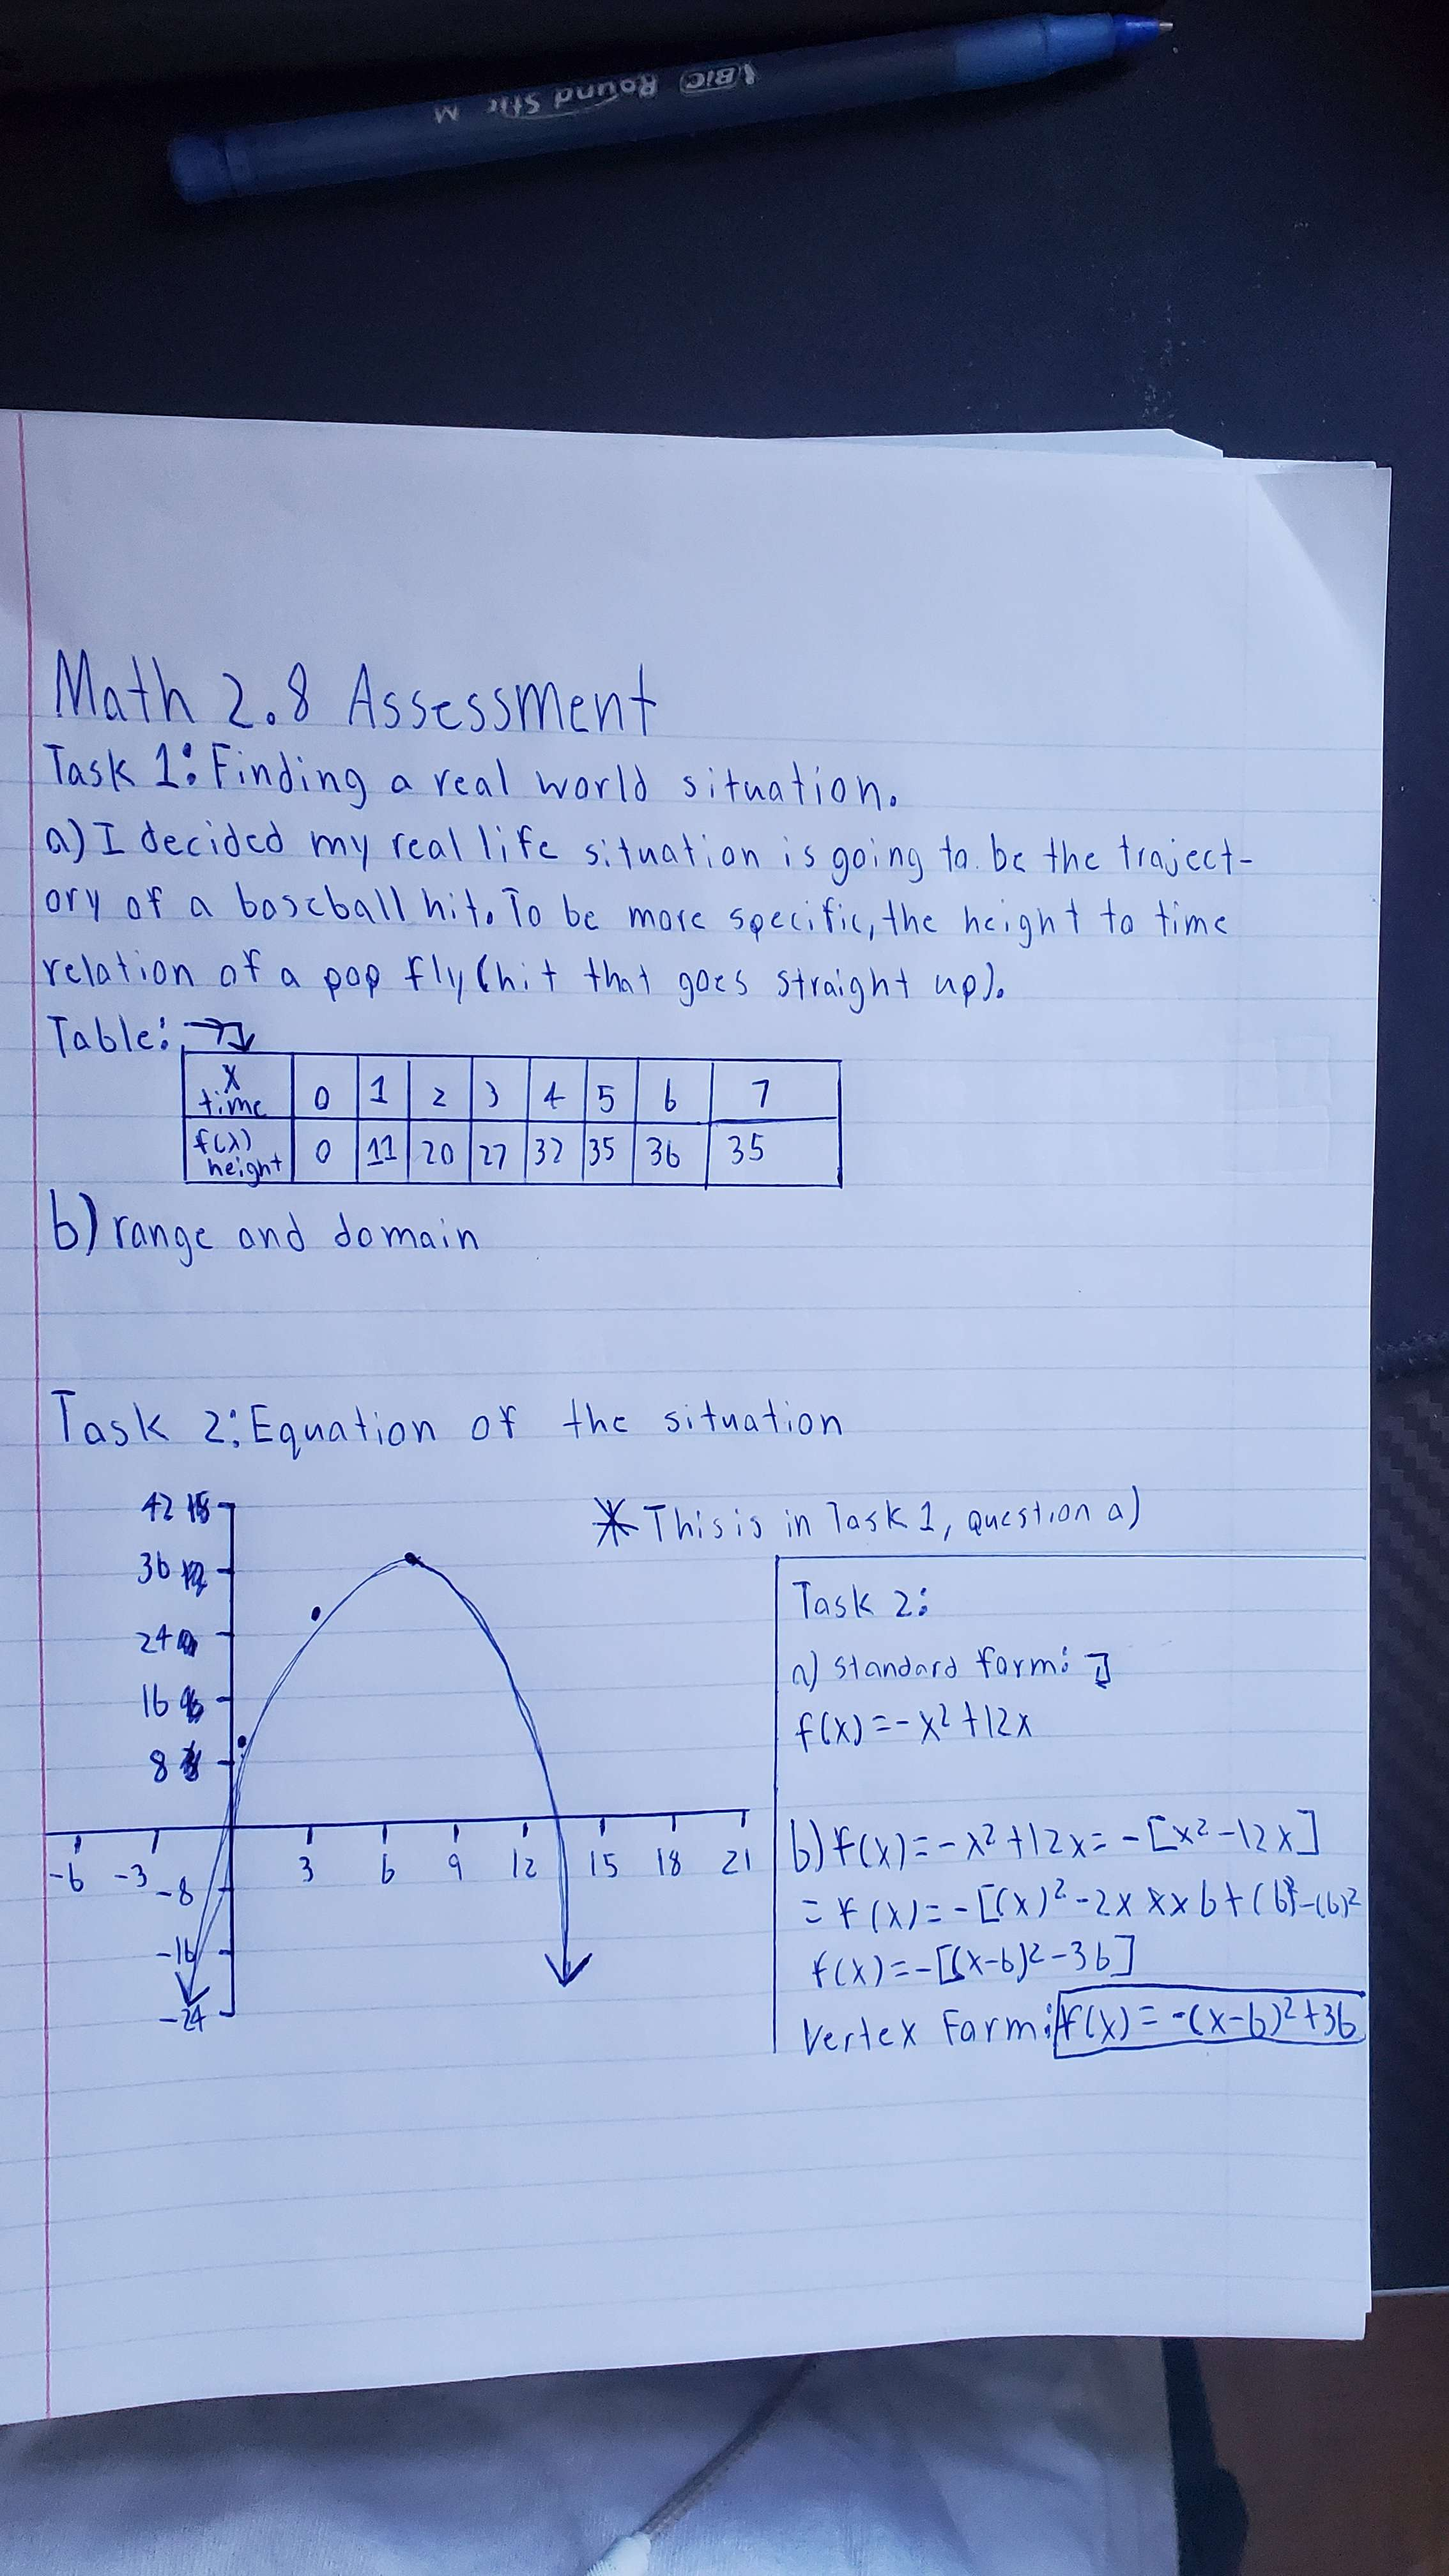 BIC Round Stic M
Math 2.8 Assessment
Task 1: Finding a real world situation.
a) I decided my real life situation is going to be the traject-
ory of a baseball hit. To be more specific, the height to time
relation of a pop fly (hit that goes straight up).
Table:
x time 0 1 2 3 4 5 6 7
f(x) height 0 11 20 27 32 35 36 35
b) range and domain
Task 2: Equation of the situation
* This is in Task 1, question a)
42
36
24
16
8
-6 -3 3 6 9 12 15 18 21
-8
-16
-24
Task 2:
a) standard form:
f(x) = -x² + 12x
b) f(x) = -x² + 12x = -[x² - 12x]
= f(x) = -[(x)² - 2x x x 6 + (6)² - (6)²
f(x) = -[(x-6)² - 36]
Vertex Form: f(x) = -(x-6)² + 36